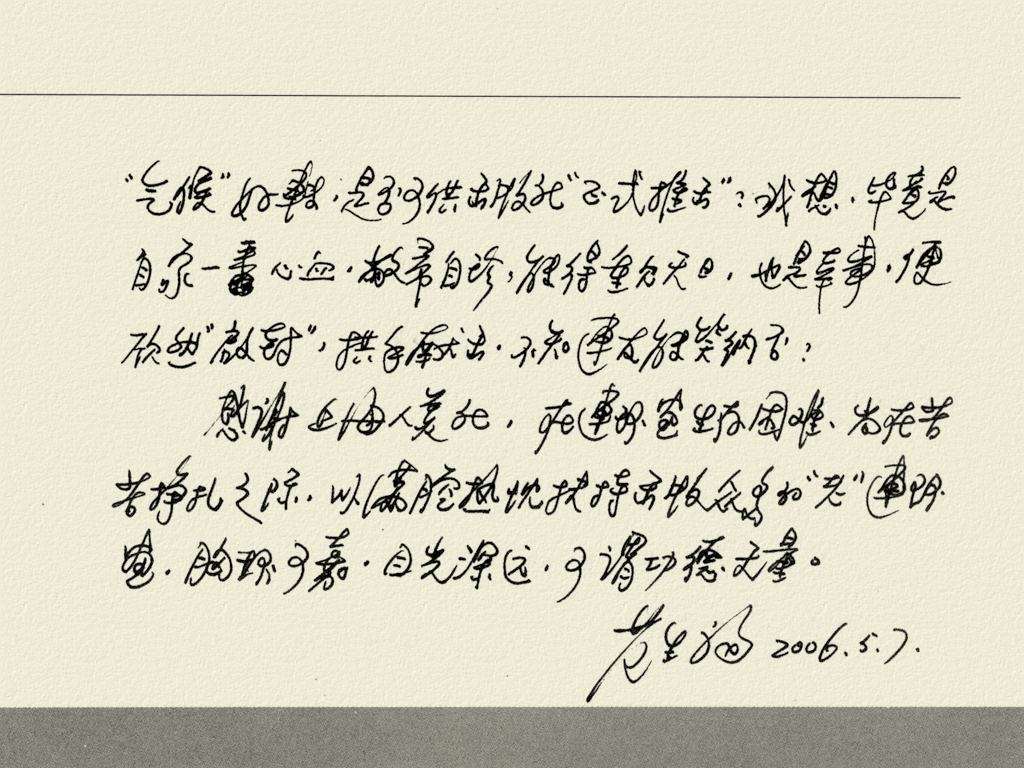 “气候”好转,是否可供出版社“正式推出”?我想,毕竟是
自家一番心血,敝帚自珍,能得重见天日,也是幸事,便
欣然“启封”,拱手献出,不知连友能笑纳否?
感谢上海人美社,在连环画生存困难、尚在苦
苦挣扎之际,以满腔热忱扶持出版众多的“老”连环
画,胸环可嘉,目光深远,可谓功德无量。
生福 2006.5.7.